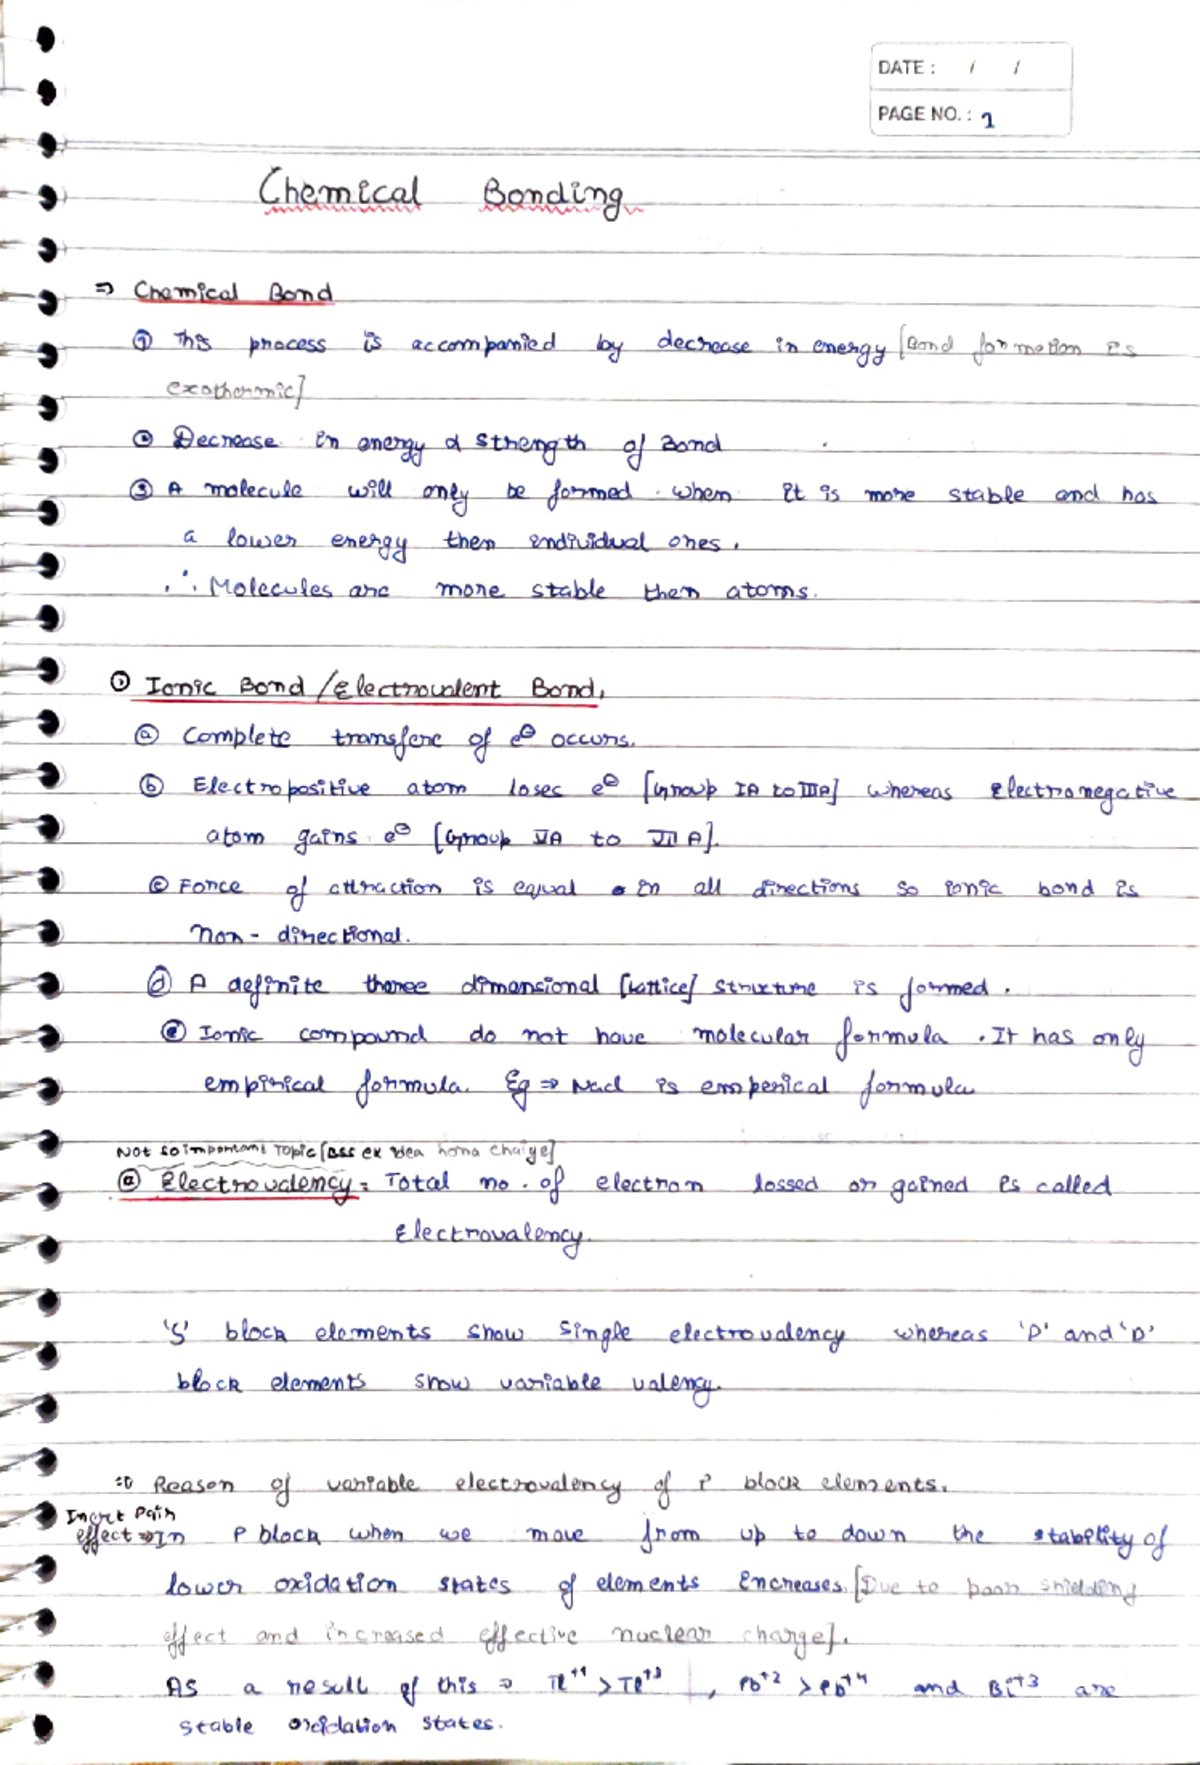 DATE : / /
PAGE NO. : 1
Chemical Bonding
⇒ Chemical Bond
① This process is accompanied by decrease in energy [Bond formation is
exothermic]
② Decrease in energy α strength of Bond
③ A molecule will only be formed when it is more stable and has
a lower energy then individual ones.
∴ Molecules are more stable then atoms.
① Ionic Bond / Electrovalent Bond,
ⓐ Complete transfere of e⊖ occurs.
ⓑ Electropositive atom loses e⊖ [Group IA to IIIA] whereas Electronegative
atom gains e⊖ [Group VA to VIIA].
ⓒ Force of attraction is equal in all directions so ionic bond is
non-directional.
ⓓ A definite three dimensional [Lattice] structure is formed.
ⓔ Ionic compound do not have molecular formula. It has only
empirical formula. Eg ⇒ Nacl is emperical formula
Not so important Topic [Bss ek idea hona chaiye]
ⓐ Electrovalency = Total no. of electron lossed or gained is called
Electrovalency.
'S' block elements show single electrovalency whereas 'P' and 'D'
block elements show variable valency.
⇒ Reason of variable electrovalency of P block elements.
Inert Pair
effect ⇒ In P block when we move from up to down the stability of
lower oxidation states of elements increases. [Due to poor shielding
effect and increased effective nuclear charge].
As a result of this ⇒ Tl⁺¹ > Tl⁺³ , Pb⁺² > Pb⁺⁴ and Bi⁺³ are
stable oxidation states.